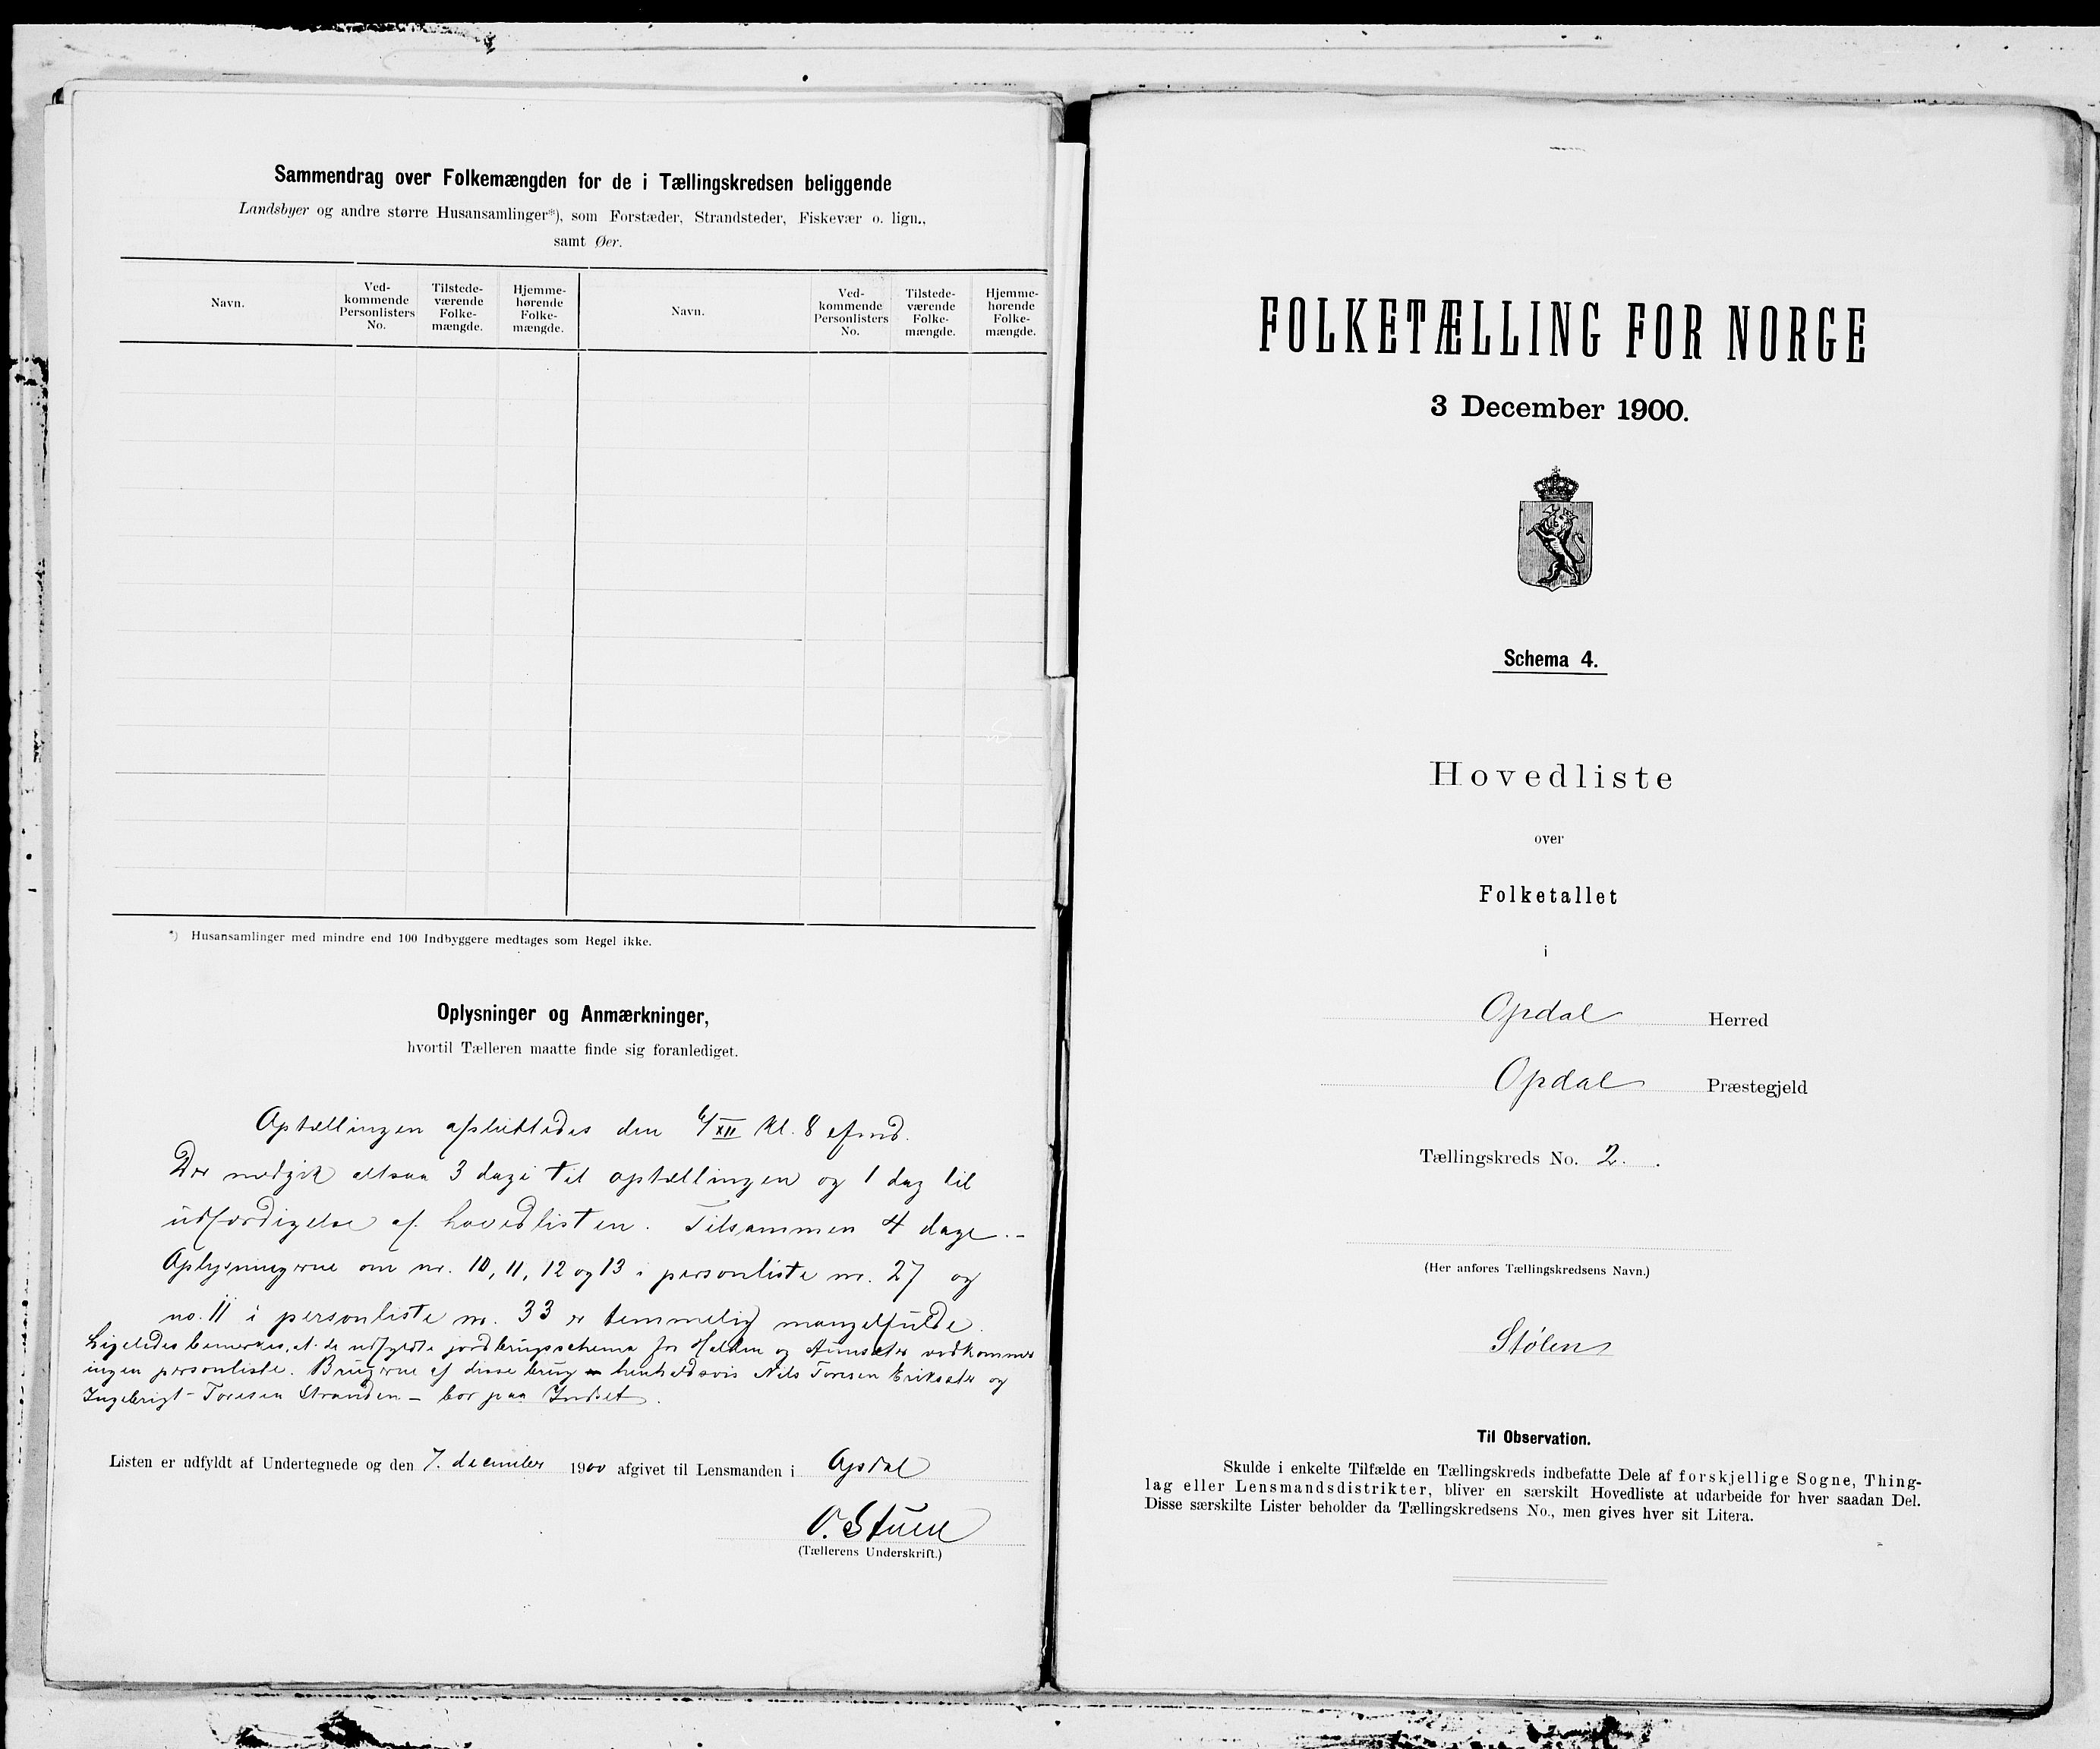 Sammendrag over Folkemængden for de i Tællingskredsen beliggende
Landsbyer og andre større Husansamlinger*), som Forstæder, Strandsteder, Fiskevær o. lign.,
samt Øer.
Navn.
Ved-
kommende
Personlisters
No.
Tilstede-
værende
Folke-
mængde.
Hjemme-
hørende
Folke-
mængde.
Navn.
Ved-
kommende
Personlisters
No.
Tilstede-
værende
Folke-
mængde.
Hjemme-
hørende
Folke-
mængde.
*) Husansamlinger med mindre end 100 Indbyggere medtages som Regel ikke.
Oplysninger og Anmærkninger,
hvortil Tælleren maatte finde sig foranlediget.
Optællingen afsluttedes den 6/XII kl. 8 efmd.
Der medgik altsaa 3 dage til optællingen og 1 dag til
udfærdigelse af hovedlisten. Tilsammen 4 dage.-
Oplysningerne om nr. 10, 11, 12 og 13 i personliste nr. 27 og
no. 11 i personliste nr. 33 er temmelig mangelfulde.
Ligeledes bemerkes, at de udfyldte jordbrugsschema for og vedkommer
ingen personliste. Brugerne af disse brug henholdsvis Nils Toresen Eriksæter og
Ingebrigt Toresen Stranden - bor paa Indset.
Listen er udfyldt af Undertegnede og den 7. december 1900 afgivet til Lensmanden i Opdal
O. Stuen
(Tællerens Underskrift.)
FOLKETÆLLING FOR NORGE
3 December 1900.
Schema 4.
Hovedliste
over
Folketallet
i
Opdal Herred
Opdal Præstegjeld
Tællingskreds No. 2.
(Her anføres Tællingskredsens Navn.)
Stølen
Til Observation.
Skulde i enkelte Tilfælde en Tællingskreds indbefatte Dele af forskjellige Sogne, Thing-
lag eller Lensmandsdistrikter, bliver en særskilt Hovedliste at udarbeide for hver saadan Del.
Disse særskilte Lister beholder da Tællingskredsens No., men gives hver sit Litera.